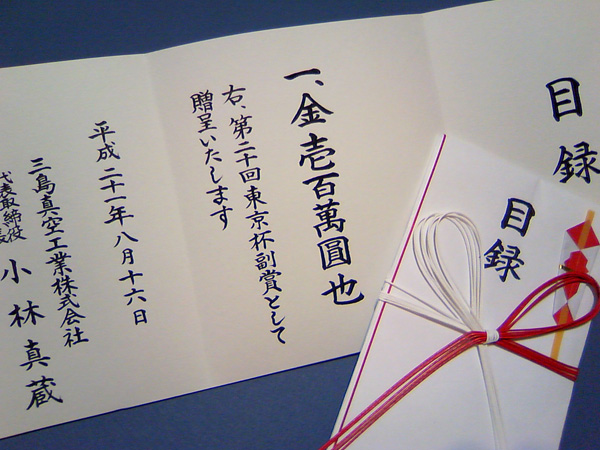 目録
一、金壱百萬圓也
右、第二十回東京杯副賞として
贈呈いたします
平成二十一年八月十六日
三島真空工業株式会社
代表取締役
小林真蔵
目録